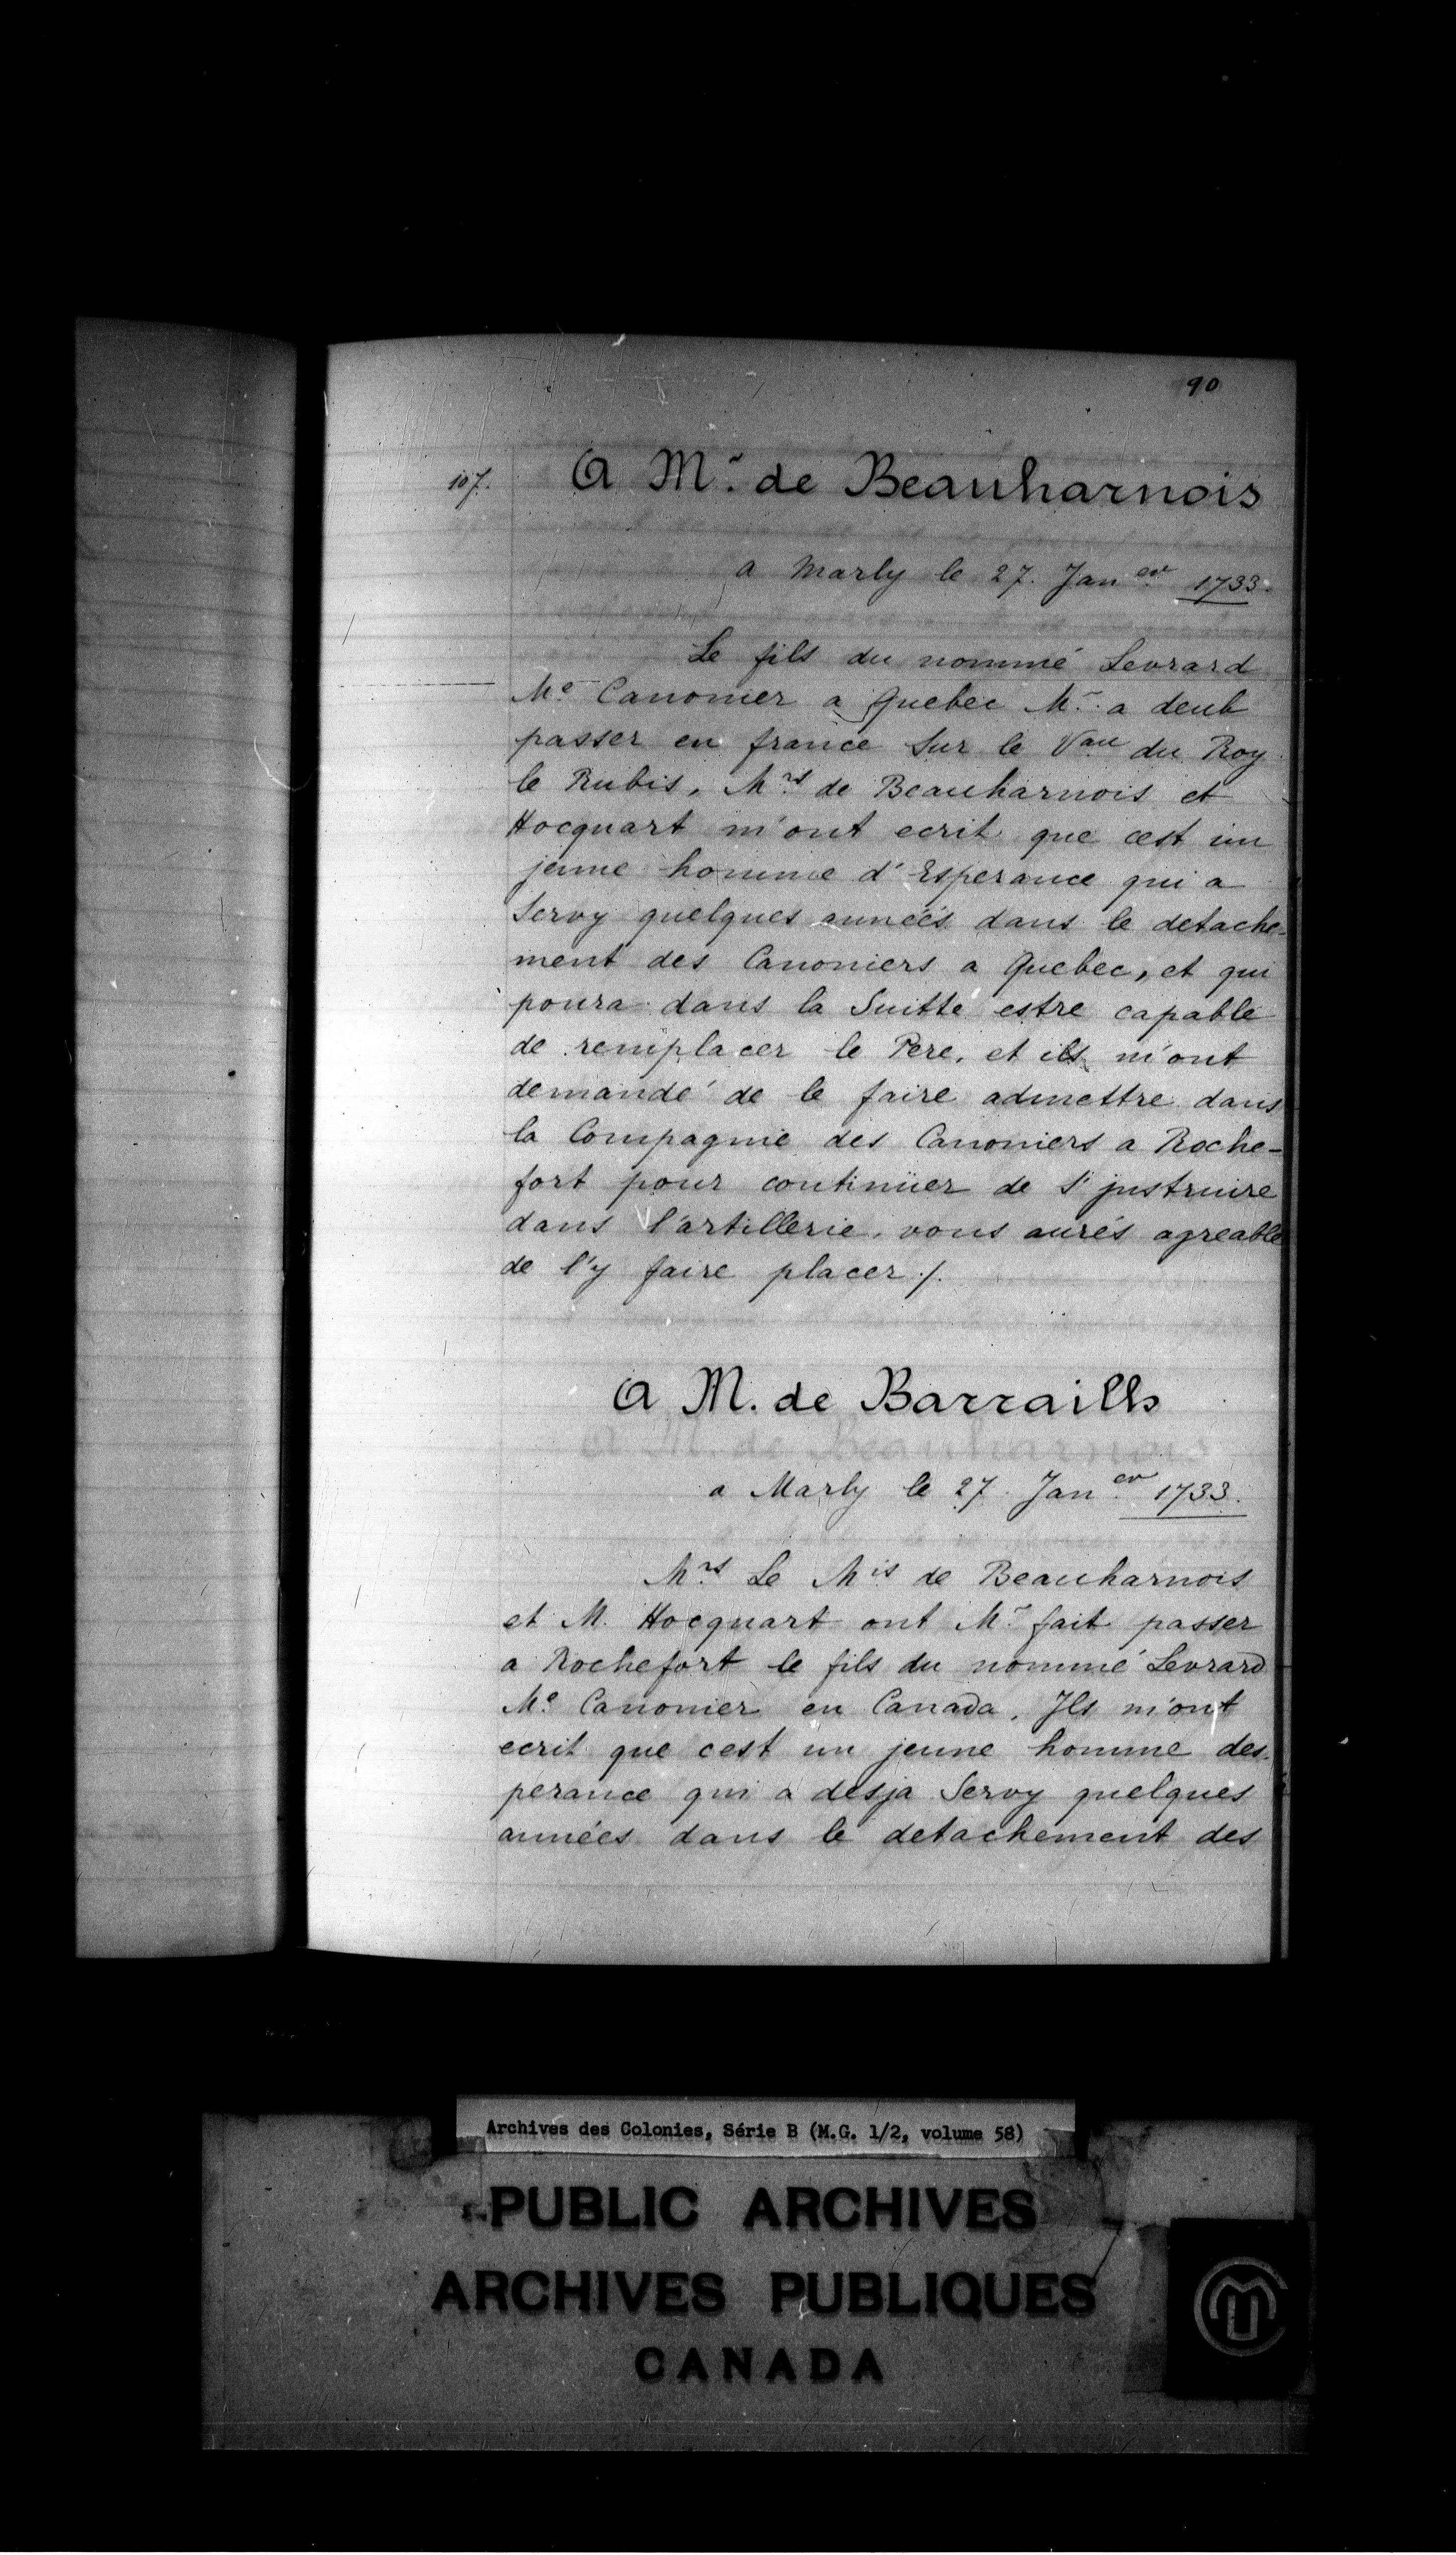 90
107.
A Mr. de Beauharnois
a Marly le 27. Janer 1733.
Le fils du nommé Levrard
Me Canonier a Quebec Mr. a deub
passer en france Sur le Vau du Roy
le Rubis, Mrs de Beauharnois et
Hocquart m'ont ecrit que cest un
jeune homme d'Esperance qui a
Servy quelques années dans le detache-
ment des Canoniers a Quebec, et qui
poura dans la Suitte estre capable
de remplacer le Pere, et ils m'ont
demandé de le faire admettre dans
la Compagnie des Canoniers a Roche-
fort pour continüer de s'jnstruire
dans l'artillerie, vous aurés agreable
de l'y faire placer ./.
A M. de Barrailh
a Marly le 27 Janer 1733.
Mrs Le Mis de Beauharnois
et M. Hocquart ont Mr fait passer
a Rochefort le fils du nommé Levrard
Me Canonier en Canada, Ils m'ont
ecrit que cest un jeune homme des-
perance qui a desja Servy quelques
années dans le detachement des
Archives des Colonies, Série B (M.G. 1/2, volume 58)
PUBLIC ARCHIVES
ARCHIVES PUBLIQUES
CANADA